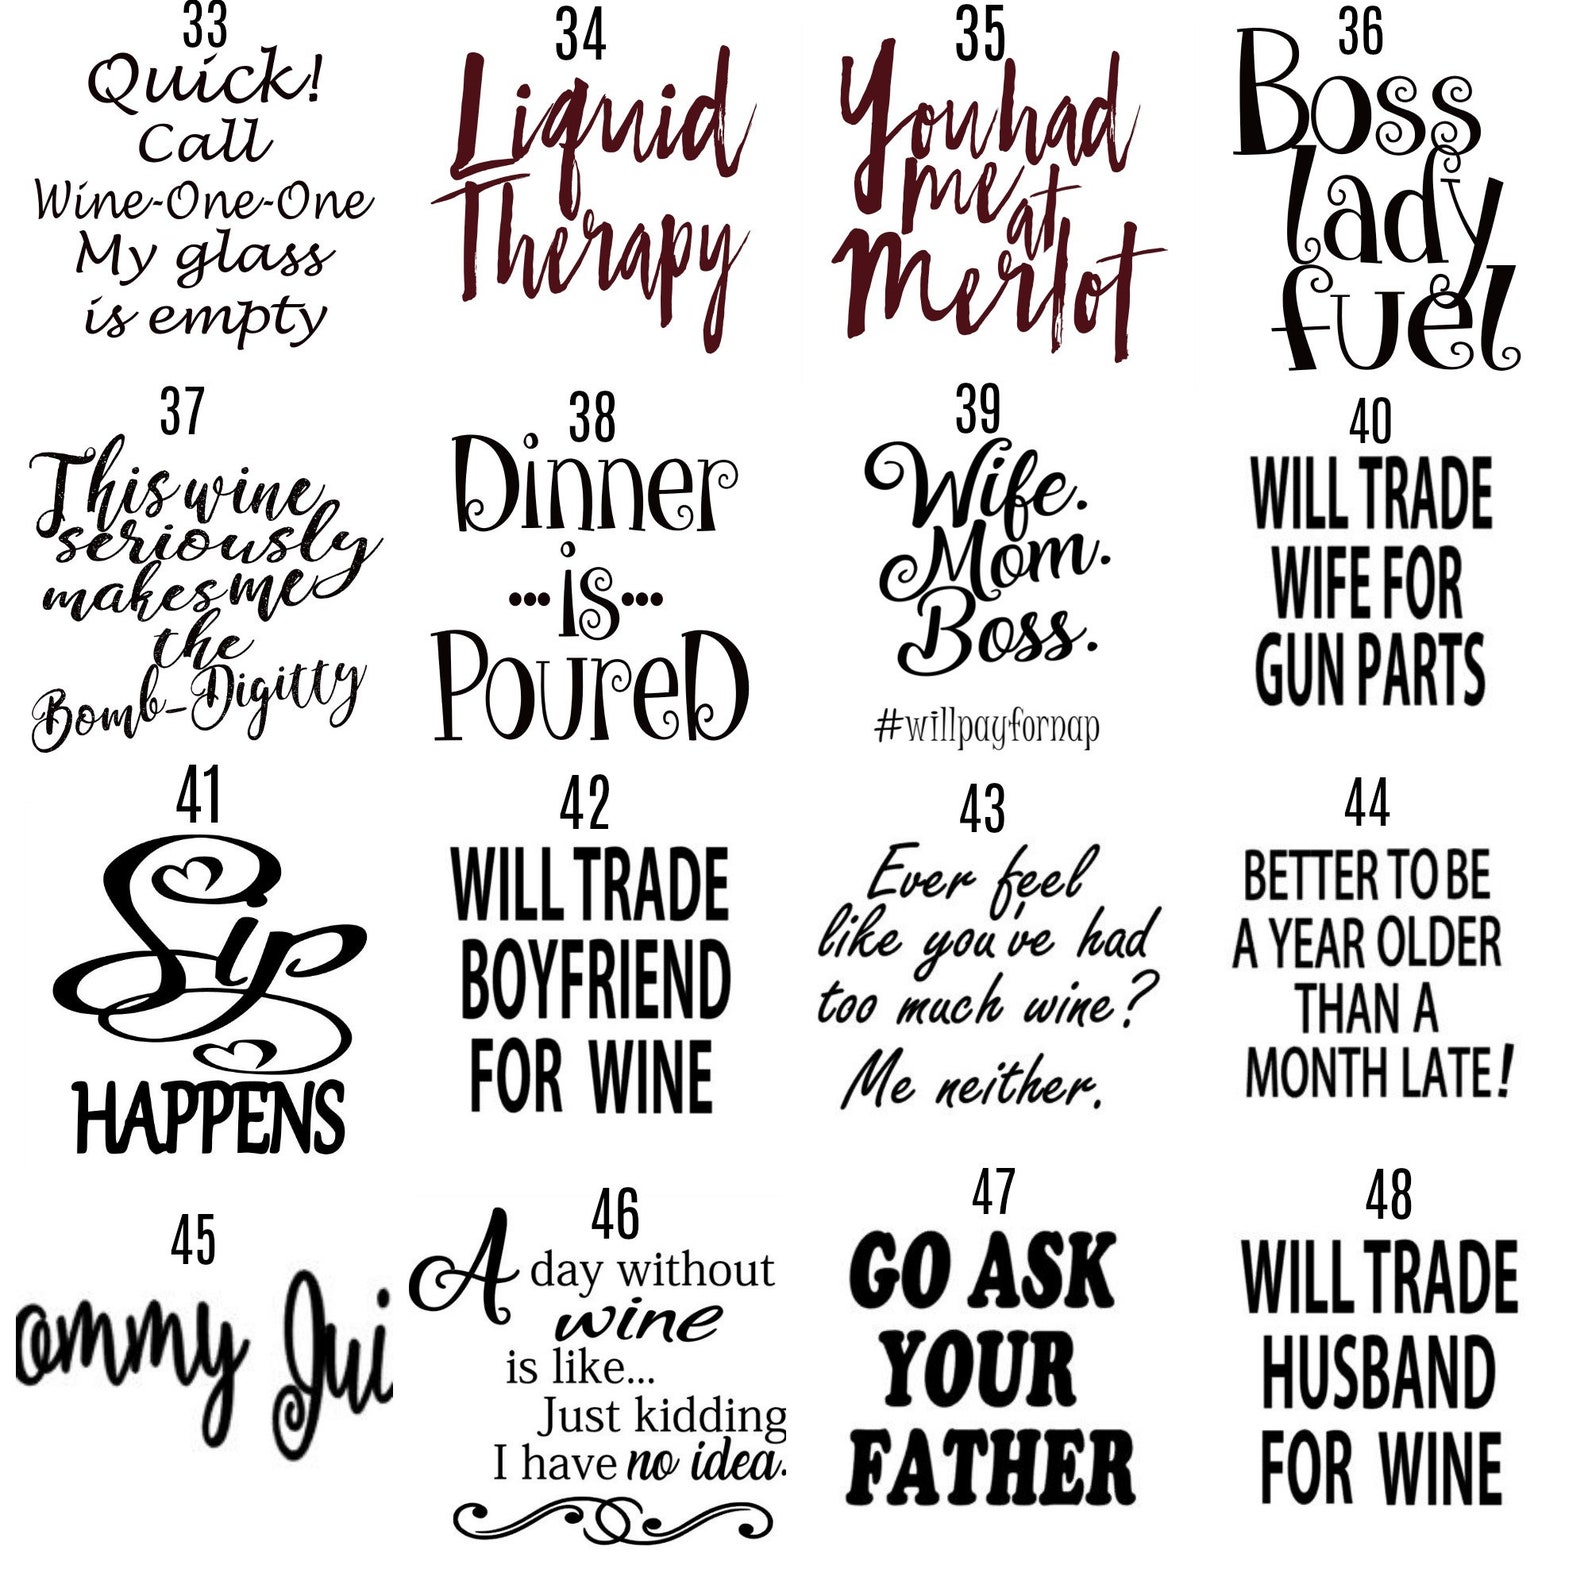 33
Quick!
Call
Wine-One-One
My glass
is empty
34
Liquid
Therapy
35
You had
me at
Merlot
36
Boss
lady
fuel
37
This wine
seriously
makes me
the
Bomb-Digitty
38
Dinner
...is...
PoureD
39
Wife.
Mom.
Boss.
#willpayfornap
40
WILL TRADE
WIFE FOR
GUN PARTS
41
Sip
HAPPENS
42
WILL TRADE
BOYFRIEND
FOR WINE
43
Ever feel
like you've had
too much wine?
Me neither.
44
BETTER TO BE
A YEAR OLDER
THAN A
MONTH LATE!
45
ommy Jui
46
A day without
wine
is like...
Just kidding
I have no idea.
47
GO ASK
YOUR
FATHER
48
WILL TRADE
HUSBAND
FOR WINE